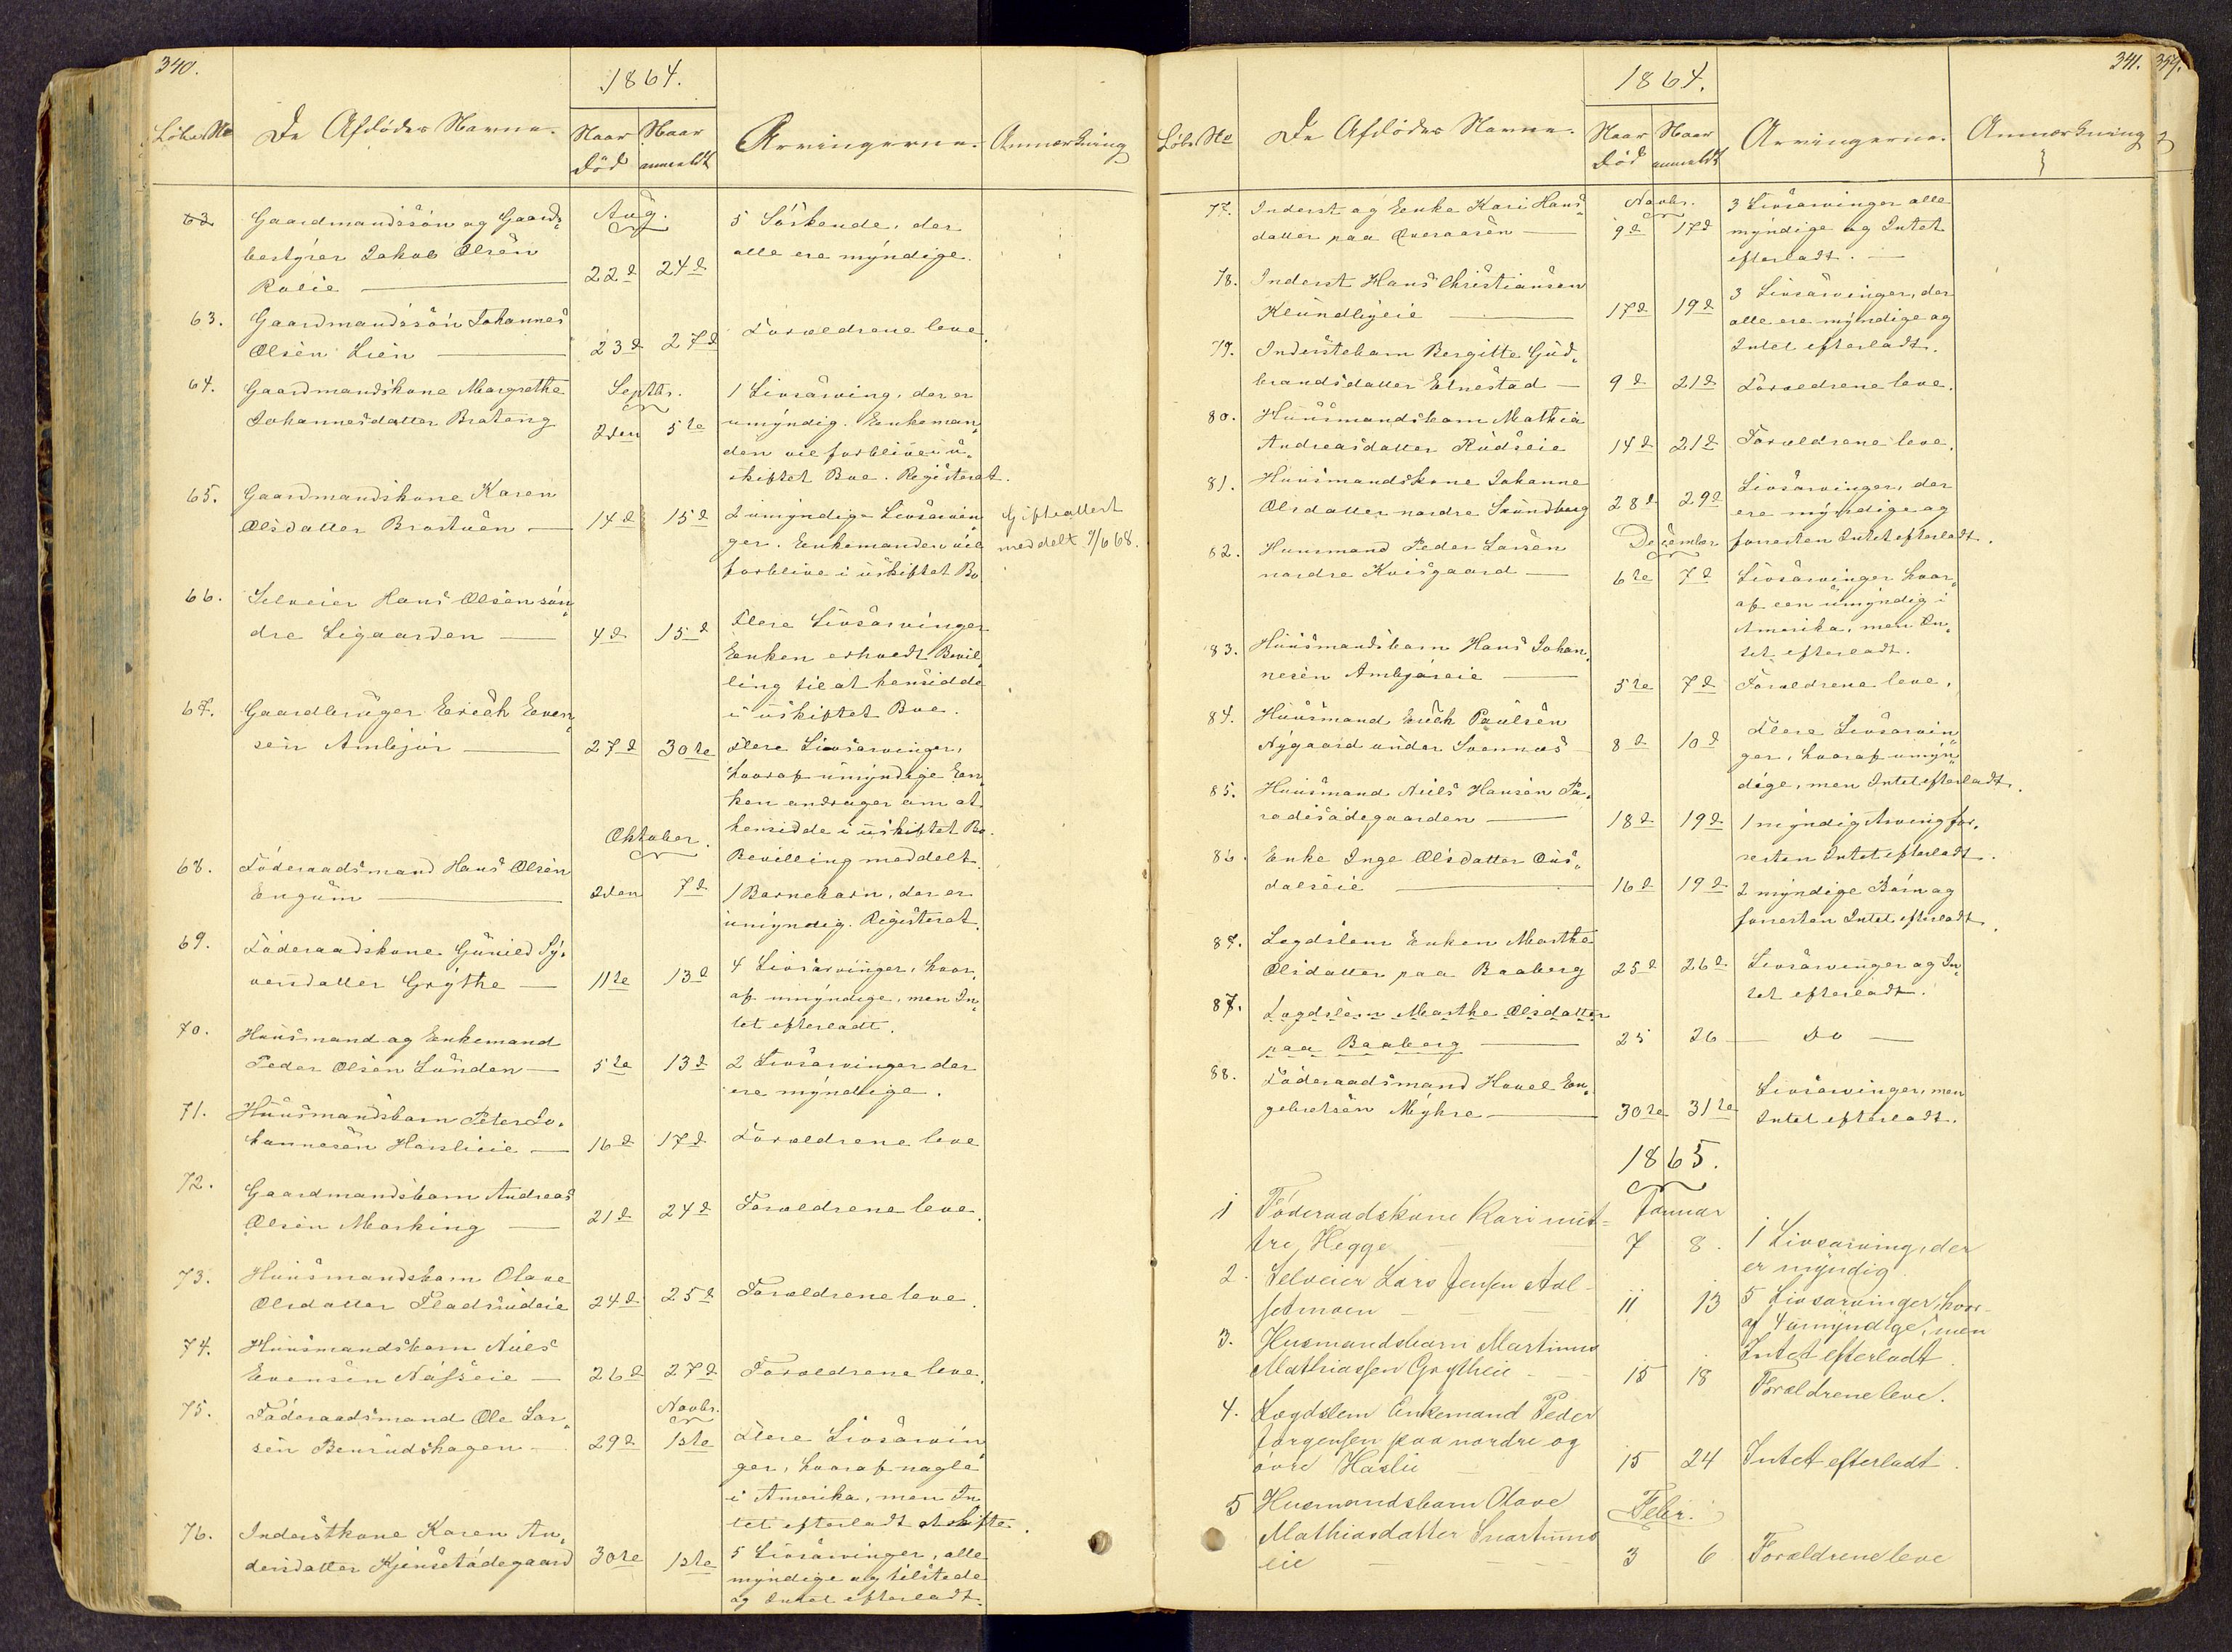 340.
1864.
Löbe No
De Afdödes Navne.
Naar Död
Naar anmeldt
Arvingerne.
Anmærkning
62
Gaardmandssön og Gaard-
bestyrer Jakob Olsen
Rolie
Aug.
22d 24d
5 Söskende, der
alle ere myndige.
63.
Gaardmandssön Johannes
Olsen Lien
23d 27d
Forældrene leve.
64.
Gaardmandskone Margrethe
Johannesdatter Brateng
Septbr.
2den 5te
1 Livsarving, der er
umyndig. Enkeman-
den vil forblive i u-
skiftet Boe. Registeret.
65.
Gaardmandskone Karen
Olsdatter Brostuen
14d 15d
2 umyndige Livsarvin-
ger. Enkemanden vil
forblive i uskiftet Bo
Gifteattest
meddelt 9/6 68.
66.
Selveier Hans Olsen sön-
dre Ligaarden
4d 15d
Flere Livsarvinger
Enken erholdt Bevil-
ling til at hensidde
i uskiftet Boe.
67.
Gaardbruger Erich Even-
sen Ambjör
27d 30te
Flere Livsarvinger,
hvoraf umyndige En-
ken andrager om at
hensidde i uskiftet Bo.
Bevilling meddelt.
68.
Föderaadsmand Hans Olsen
Engum
Oktober.
2den 7d
1 Barnebarn, der er
umyndig. Registeret.
69.
Föderaadskone Gunild Sy-
versdatter Grythe
11te 13d
4 Livsarvinger, hvor-
af umyndige, men In-
tet efterladt.
70.
Huusmand og Enkemand
Peder Olsen Lunden
5te 13d
2 Livsarvinger der
ere myndige.
71.
Huusmandsbarn Peter Jo-
hannesen Hasslieie
16d 17d
Forældrene leve
72.
Gaardmandsbarn Andreas
Olsen Morking
21d 24d
Forældrene leve.
73.
Huusmandsbarn Olave
Olsdatter Fladrudeie
24d 25d
Forældrene leve.
74.
Huusmandsbarn Niels
Evensen Næsseie
26d 27d
Forældrene leve.
75.
Föderaadsmand Ole Lar-
sen Benrudshagen
Novbr.
29d 1ste
Flere Livsarvin-
ger, hvoraf nogle
i Amerika, men In-
tet efterladt at skifte.
76.
Inderstkone Karen An-
dersdatter Kjensetödegaard
30te 1ste
5 Livsarvinger, alle
myndige og tilstede
og Intet efterladt.
341. 357.
1864.
Löbe No
De Afdödes Navne.
Naar Död
Naar anmeldt
Arvingerne.
Anmærkning
77.
Inderst og Enke Kari Hans-
datter paa Qveraasen
Novbr.
9d 17d
3 Livsarvinger alle
myndige og Intet
efterladt.
78.
Inderst Hans Christiansen
Klundbyeie
17d 19d
3 Livsarvinger, der
alle ere myndige og
Intet efterladt.
79.
Inderstebarn Bergitte Gud-
brandsdatter Elnestad
9d 21d
Forældrene leve.
80.
Huusmandsbarn Mathia
Andreasdatter Rudseie
14d 21d
Forældrene leve.
81.
Huusmandskone Johanne
Olsdatter nordre Sundberg
28d 29d
Livsarvinger, der
ere myndige og
forresten Intet efterladt.
82.
Huusmand Peder Larsen
nordre Kvisgaard
December
6te 7d
Livsarvinger hvor-
af een umyndig i
Amerika, men In-
tet efterladt.
83.
Huusmandsbarn Hans Johan-
nesen Ambjöreie
5te 7d
Forældrene leve.
84.
Huusmand Erich Paulsen
Nygaard under Svennæs
8d 10d
Flere Livsarvin-
ger, hvoraf umyn-
dige, men Intet efterladt.
85.
Huusmand Niels Hansen Pa-
radisödegaarden
18d 19d
1 myndig Arving for-
resten Intet efterladt.
86.
Enke Inge Olsdatter Aus-
dalseie
16d 19d
2 myndige Börn og
forresten Intet efterladt.
87.
Legdslem Enken Marthe
Olsdatter paa Baaberg
25d 26d
Livsarvinger og In-
tet efterladt.
87.
Legdslem Marthe Olsdatter
paa Baaberg
25 26
Do
88.
Föderaadsmand Hovel En-
gebretsen Myhre
30te 31te
Livsarvinger, men
Intet efterladt.
1865.
1
Föderaadskone Kari mid-
tre Hegge
Januar
7 8.
1 Livsarving, der
er myndig
2.
Selveier Lars Jensen Aal-
setmoen
11 13
5 Livsarvinger, hvor-
af 4 umyndige, men
Intet efterladt.
3.
Husmandsbarn Martinus
Mathiassen Grytheie
15 18
Forældrene leve.
4.
Lægdslem Enkemand Peder
Jörgensen paa nordre og
övre Haslie
15 24
Intet efterladt.
5
Husmandsbarn Olave
Mathiasdatter Snartums
eie
Febr.
3 6
Forældrene leve